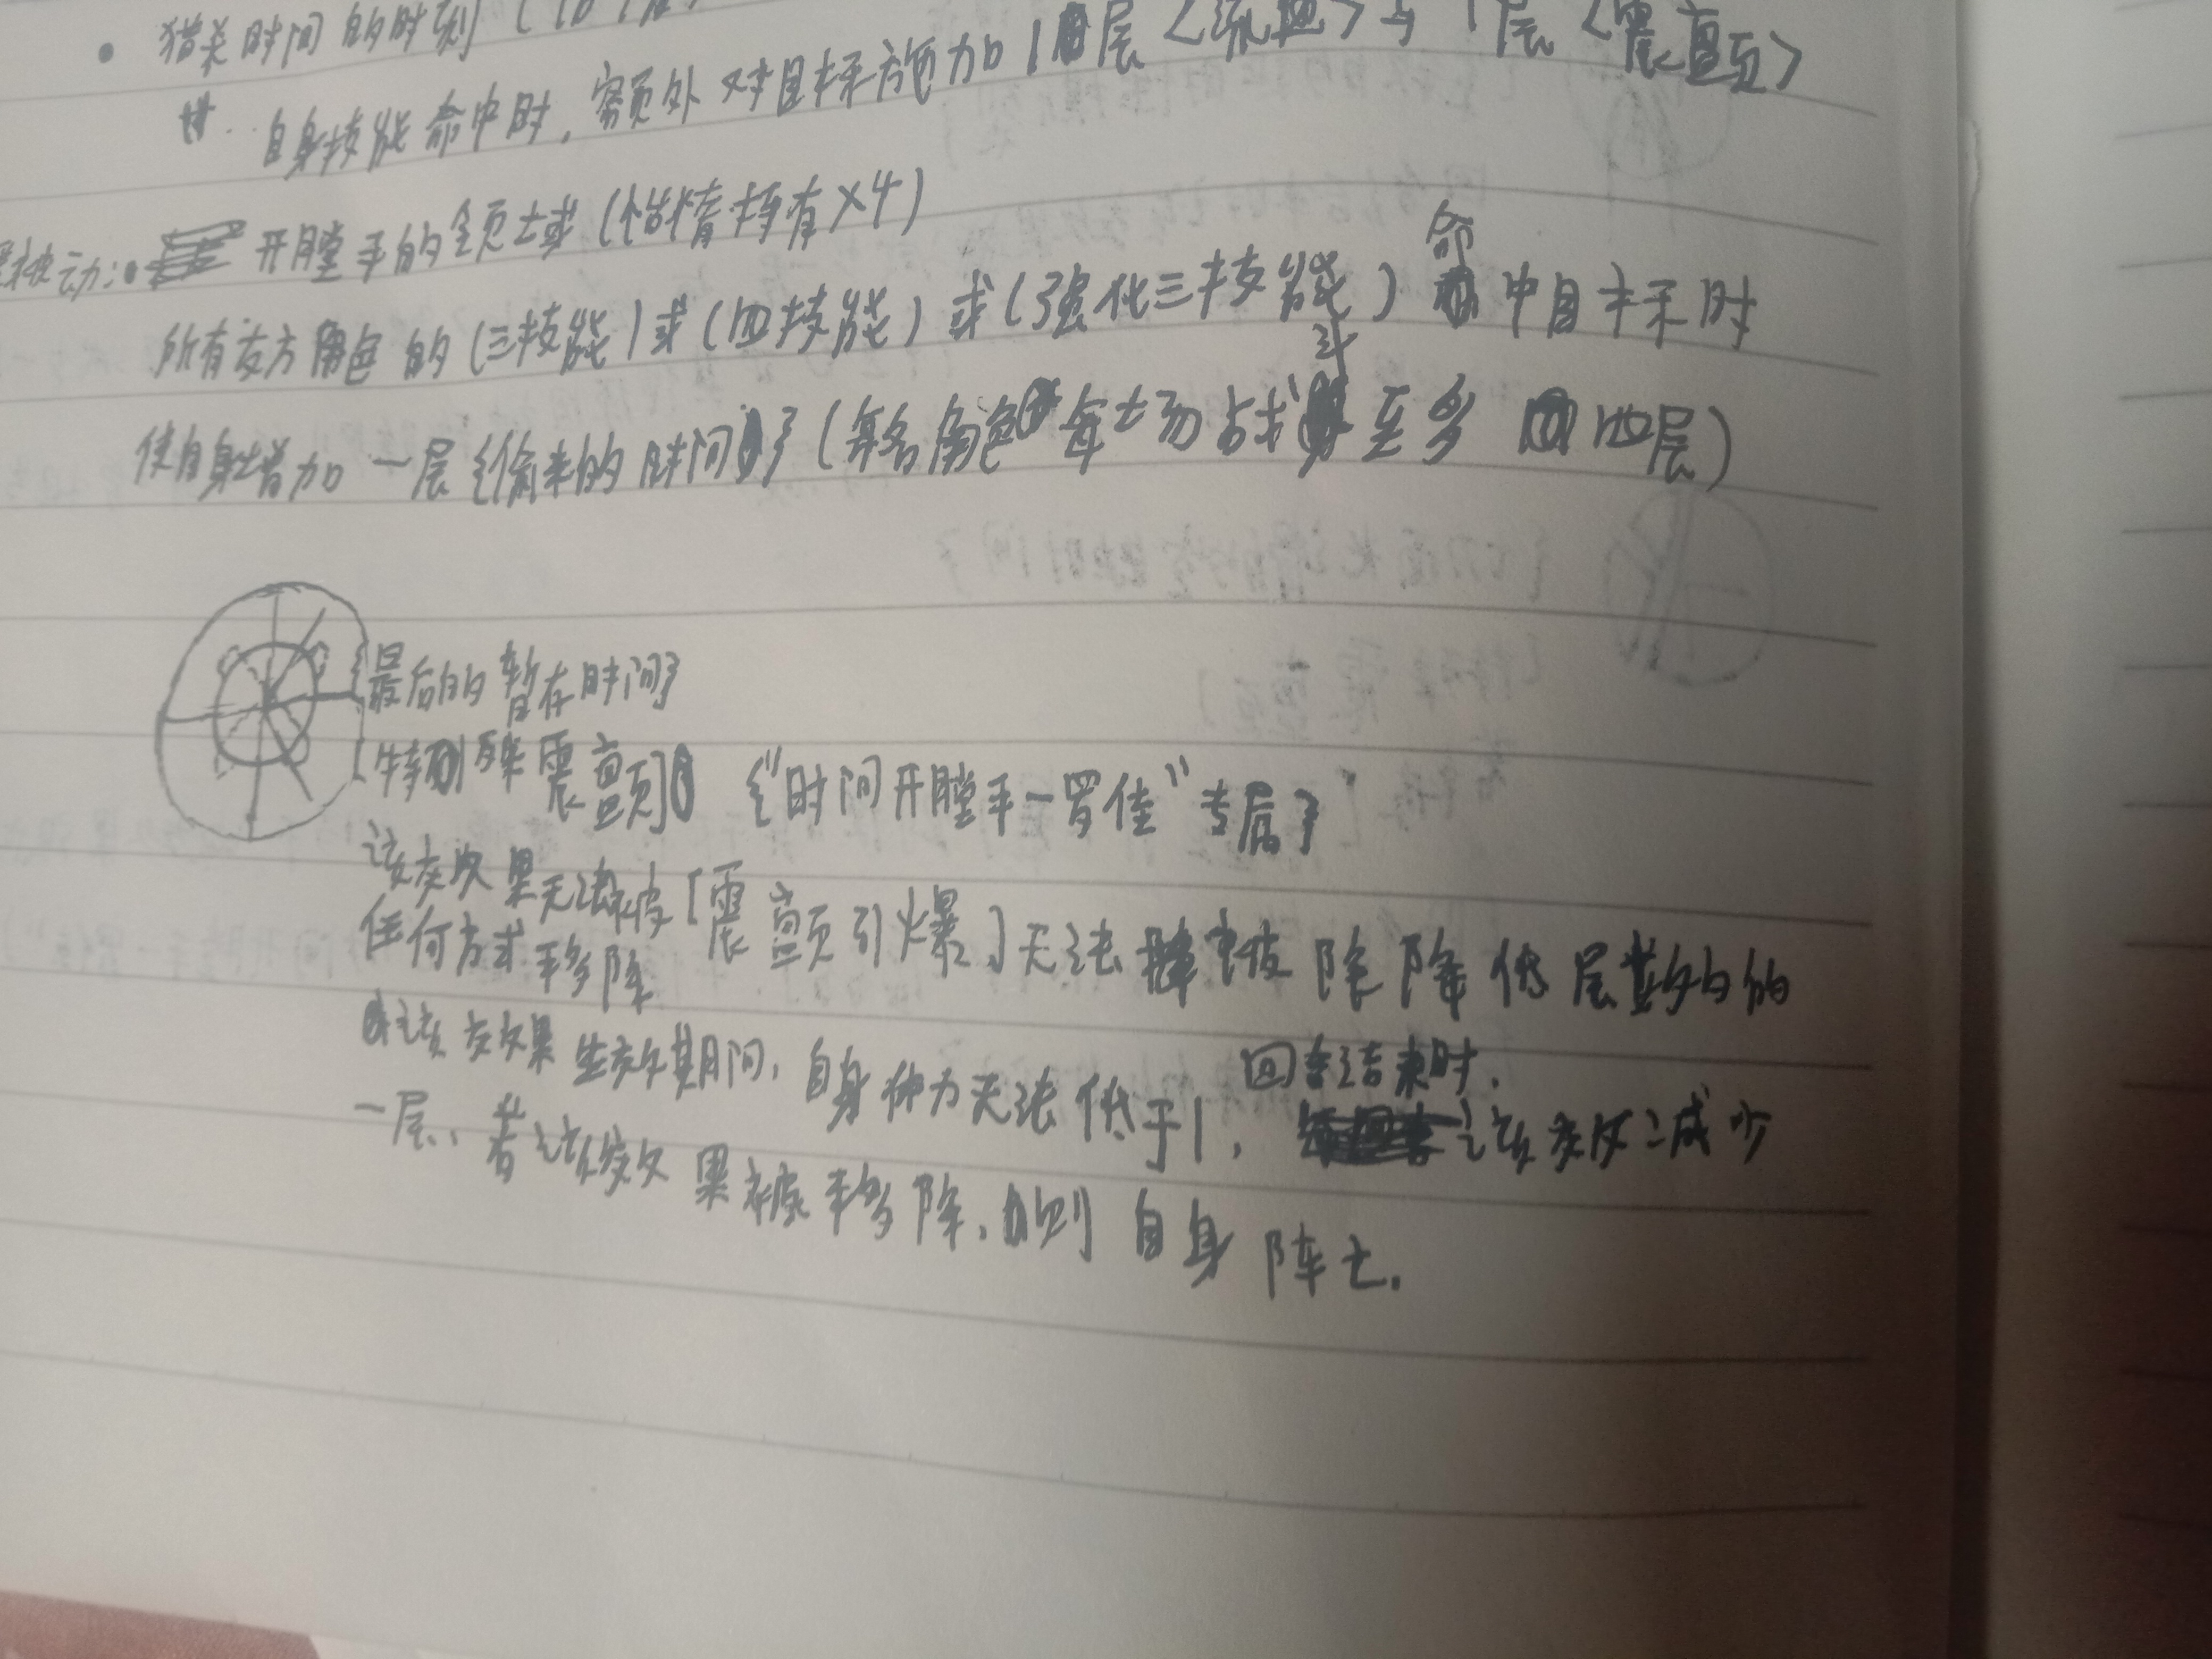 猎杀时间的时刻(
自身技能命中时，额外对目标施加1层<流血>与1层<震颤>
被动：开膛手的领域(怠惰持有×4)
所有友方角色的(三技能)或(四技能)或(强化三技能)命中目标时
使自身增加一层{偷来的时间}(每名角色每场战斗至多四层)
{最后的暂存时间}
[特殊震颤] {"时间开膛手-罗佳"专属}
该效果无法被[震颤引爆]无法被除降低层数的
任何方式移除
该效果生效期间，自身体力无法低于1，回合结束时，该效果减少
一层，若该效果被移除，则自身阵亡.